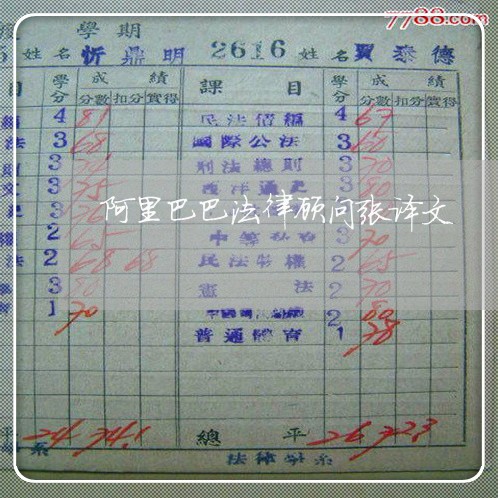 7788.com
學期
姓名 忻鼎明 2616 姓名 賈泰德
目 學分 成績 課目 學分 成績
分數 扣分 實得 分數 扣分 實得
4 81 民法債編 4 67
法 3 68 國際公法 3 60
則 3 刑法總則 3 70
文 3 75 西洋通史 3 80
阿里巴巴法律顾问张译文
2 65 3 70
法 2 68 68 民法物權 2 65
3 80 憲法 2 70
1 70 2 80
普通體育 1 78
平 24 74.1 總平 26 72.3
系 法律學系